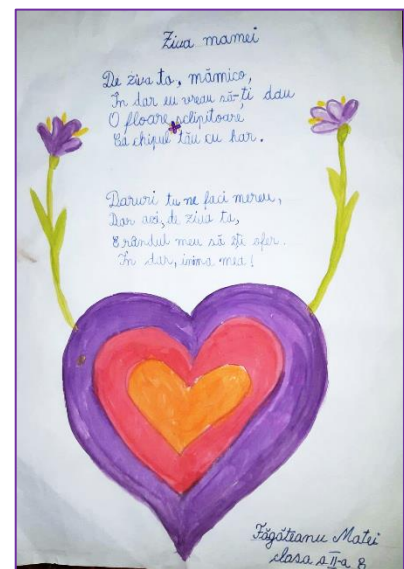 Ziua mamei
De ziua ta, mămico,
În dar eu vreau să-ți dau
O floare sclipitoare
Ca chipul tău cu har.
Daruri tu ne faci mereu,
Dar azi, de ziua ta,
E rândul meu să-ți ofer
În dar, inima mea!
Făgăteanu Matei
clasa a II-a B